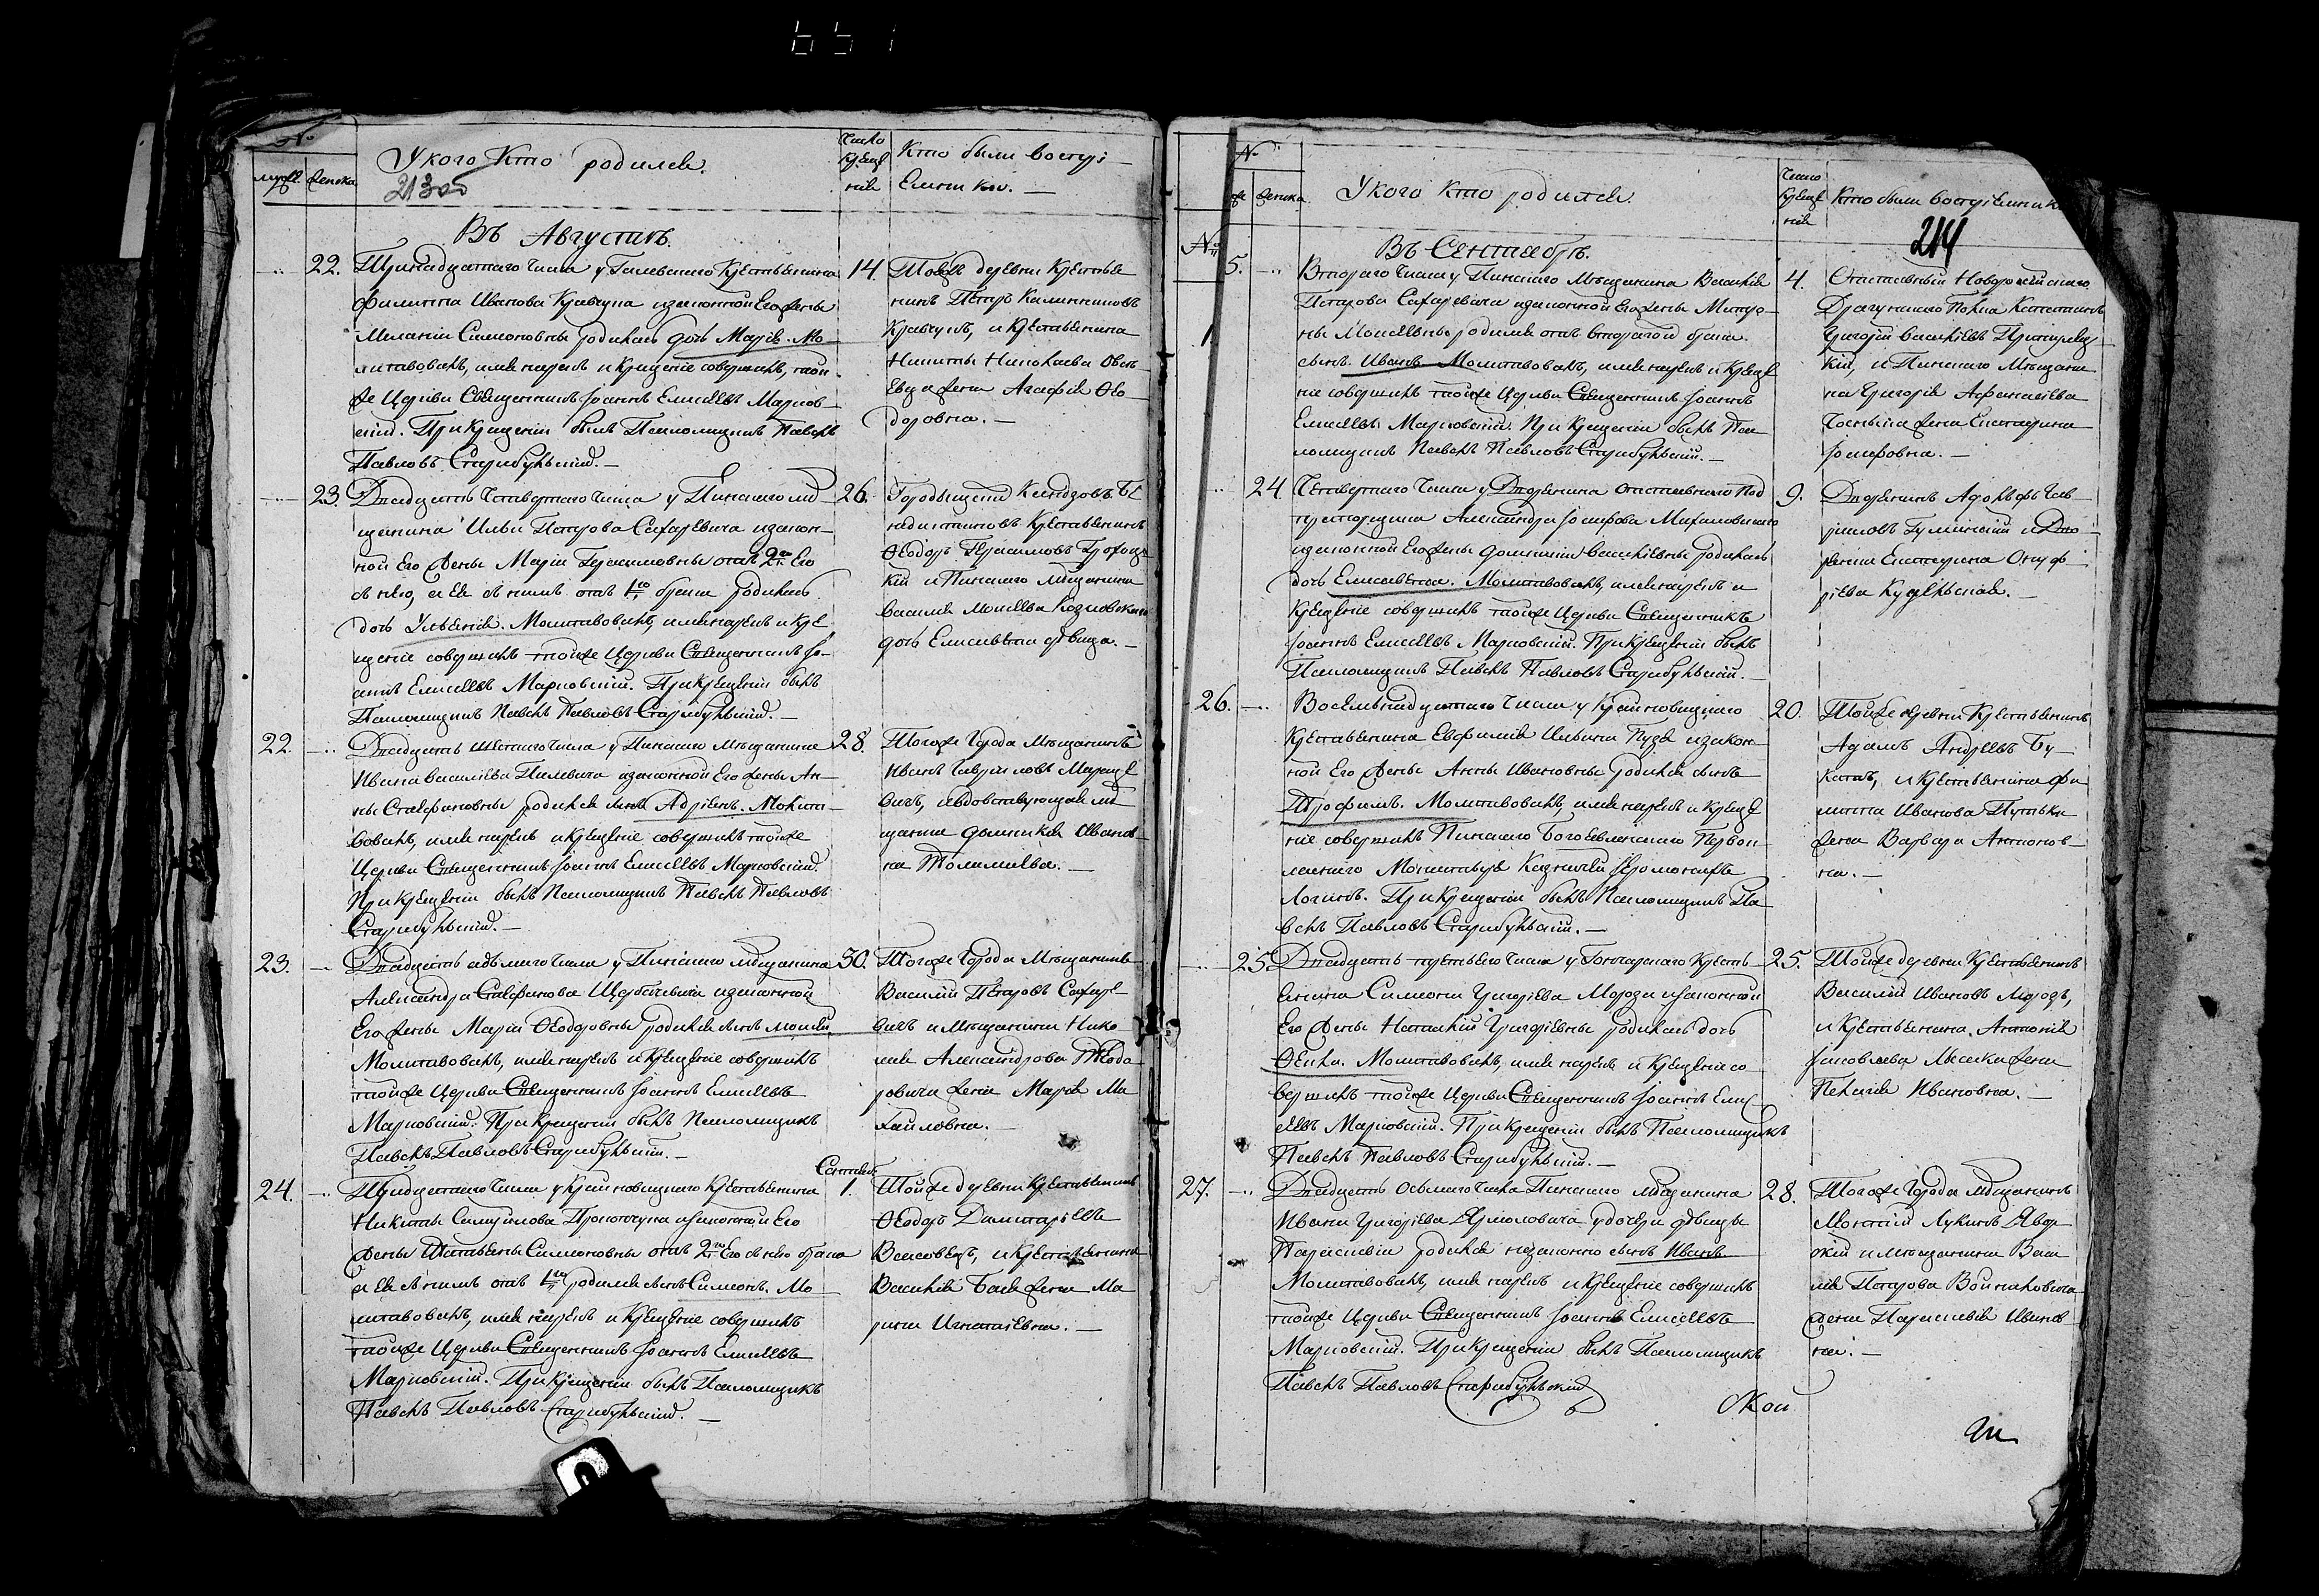 №
муж. женска
У кого кто родился.
213 об
Число крещенія
Кто были воспріемники.
Въ Августѣ.
22. Тринадцатаго числа у Галевскаго Крестьянина
Филиппа Иванова Кравчука изаконной Его жены
Меланіи Симоновны родилась дочь Марія. Мо
литвовалъ, имя нарекъ и Крещеніе совершилъ, той
же Церкви Священникъ Іоаннъ Елисѣевъ Марков
скій. При Крещеніи былъ Паломщикъ Павелъ
Павловъ Старибульскій.
14. Тойже деревни Крестья
нинъ Петръ Калинниковъ
Кравчукъ, и Крестьянина
Никиты Николаева
жена Агафія Ѳео
доровна.
23. Двадцать четвертаго числа у Пинскаго мѣ
щанина Ильи Петрова Сахаревича изакон
ной Его жены Маріи Герасимовны отъ 2го Его
съ нею, а Ея съ нимъ отъ 1го брака родилась
дочь Ульянія. Молитвовалъ, имя нарекъ и Кре
щеніе совершилъ тойже Церкви Священникъ Іо
аннъ Елисѣевъ Марковскій. При Крещеніи былъ
Паломщикъ Павелъ Павловъ Старибульскій.
26.
Крестьянинъ
Ѳеодоръ Герасимовъ
и Пинскаго мѣщанина
Василія Моисеева Козловскаго
дочь Елисавета дѣвица.
22. Двадцать шестаго числа у Пинскаго Мѣщанина
Ивана Василіева Пилевича изаконной Его жены Ан
ны Стефановны родился сынъ Адріанъ. Молит
вовалъ, имя нарекъ и Крещеніе совершилъ тойже
Церкви Священникъ Іоаннъ Елисѣевъ Марковскій.
При Крещеніи былъ Паломщикъ Павелъ Павловъ
Старибульскій.
28. Тогоже Города Мѣщанинъ
Иванъ Гавріиловъ
и вдовствующая мѣ
щанка Домникія Иванов
на
23. Двадцать седьмаго числа у Пинскаго мѣщанина
Александра Стефанова Щербачевича изаконной
Его жены Маріи Ѳеодоровны родился сынъ Моисей.
Молитвовалъ, имя нарекъ и Крещеніе совершилъ
тойже Церкви Священникъ Іоаннъ Елисѣевъ
Марковскій. При Крещеніи былъ Паломщикъ
Павелъ Павловъ Старибульскій.
30. Тогоже Города Мѣщанинъ
Василій Петровъ Сахаре
вичъ и мѣщанина Нико
лая Александрова
жена Марія Ми
хайловна.
24. Тридцатаго числа у Крайновицкаго Крестьянина
Никиты Самуилова Прокопчука изаконной Его
жены Татьяны Симоновны отъ 2го Его съ нею брака
а Ея съ нимъ отъ 1го родился сынъ Симеонъ. Мо
литвовалъ, имя нарекъ и Крещеніе совершилъ
тойже Церкви Священникъ Іоаннъ Елисѣевъ
Марковскій. При Крещеніи былъ Паломщикъ
Павелъ Павловъ Старибульскій.
1. Тойже деревни Крестьянинъ
Ѳеодоръ Димитріевъ
и Крестьянина
Василія жена Ма
рина Игнатіевна.
№
женска
У кого кто родился.
Число крещенія
Кто были воспріемники
214
Въ Сентябрѣ.
5. Втораго числа у Пинскаго Мѣщанина Василія
Петрова Сахаревича изаконной Его жены Матро
ны Моисеевны родился отъ втораго брака
сынъ Иванъ. Молитвовалъ, имя нарекъ и Креще
ніе совершилъ тойже Церкви Священникъ Іоаннъ
Елисѣевъ Марковскій. При Крещеніи былъ Па
ломщикъ Павелъ Павловъ Старибульскій.
4. Отставный Новоросійскаго
Драгунскаго Полка Капитанъ
Григорій Василіевъ
и Пинскаго Мѣщани
на Григорія Афанасіева
жена Екатерина
Іосифовна.
24. Четвертаго числа у Дворянина отставнаго Под
прапорщика Александра Іосифова
изаконной Его жены Домникіи Василіевны родилась
дочь Елисавета. Молитвовалъ, имя нарекъ и
Крещеніе совершилъ тойже Церкви Священникъ
Іоаннъ Елисѣевъ Марковскій. При Крещеніи былъ
Паломщикъ Павелъ Павловъ Старибульскій.
9. Дворянинъ Адольфъ Гав
риловъ и Дво
рянка Екатерина Онуф
ріева
26. Восемьнадцатаго числа у Крайновицкаго
Крестьянина Евфимія Ильина Пузя изакон
ной Его жены Анны Ивановны родился сынъ
Трофимъ. Молитвовалъ, имя нарекъ и Креще
ніе совершилъ Пинскаго Богоявленскаго Первок
ласнаго Монастыря Казначей Іеромонахъ
Логинъ. При Крещеніи былъ Паломщикъ Па
велъ Павловъ Старибульскій.
20. Тойже деревни Крестьянинъ
Адамъ Андреевъ
и Крестьянина Фи
липпа Иванова
жена Варвара Антонов
на.
25. Двадцать третьяго числа у Гончарскаго Кресть
янина Симеона Григоріева Мороза изаконной
Его жены Наталіи Григоріевны родилась дочь
Ѳекла. Молитвовалъ, имя нарекъ и Крещеніе со
вершилъ тойже Церкви Священникъ Іоаннъ Елис
ѣевъ Марковскій. При Крещеніи былъ Паломщикъ
Павелъ Павловъ Старибульскій.
25. Тойже деревни Крестьянинъ
Василій Ивановъ Морозъ,
и Крестьянина Антонія
Іаковлева жена
Пелагія Ивановна.
27. Двадцать осьмаго числа Пинскаго мѣщанина
Ивана Григоріева Ермоловича у дочери дѣвицы
Параскевіи родился незаконно сынъ Иванъ.
Молитвовалъ, имя нарекъ и Крещеніе совершилъ
тойже Церкви Священникъ Іоаннъ Елисѣевъ
Марковскій. При Крещеніи былъ Паломщикъ
Павелъ Павловъ Старибульскій
28. Тогоже Города мѣщанинъ
Лукинъ Явор
скій и мѣщанина Васи
лія Петрова
жена Параскевія Иванов
на.